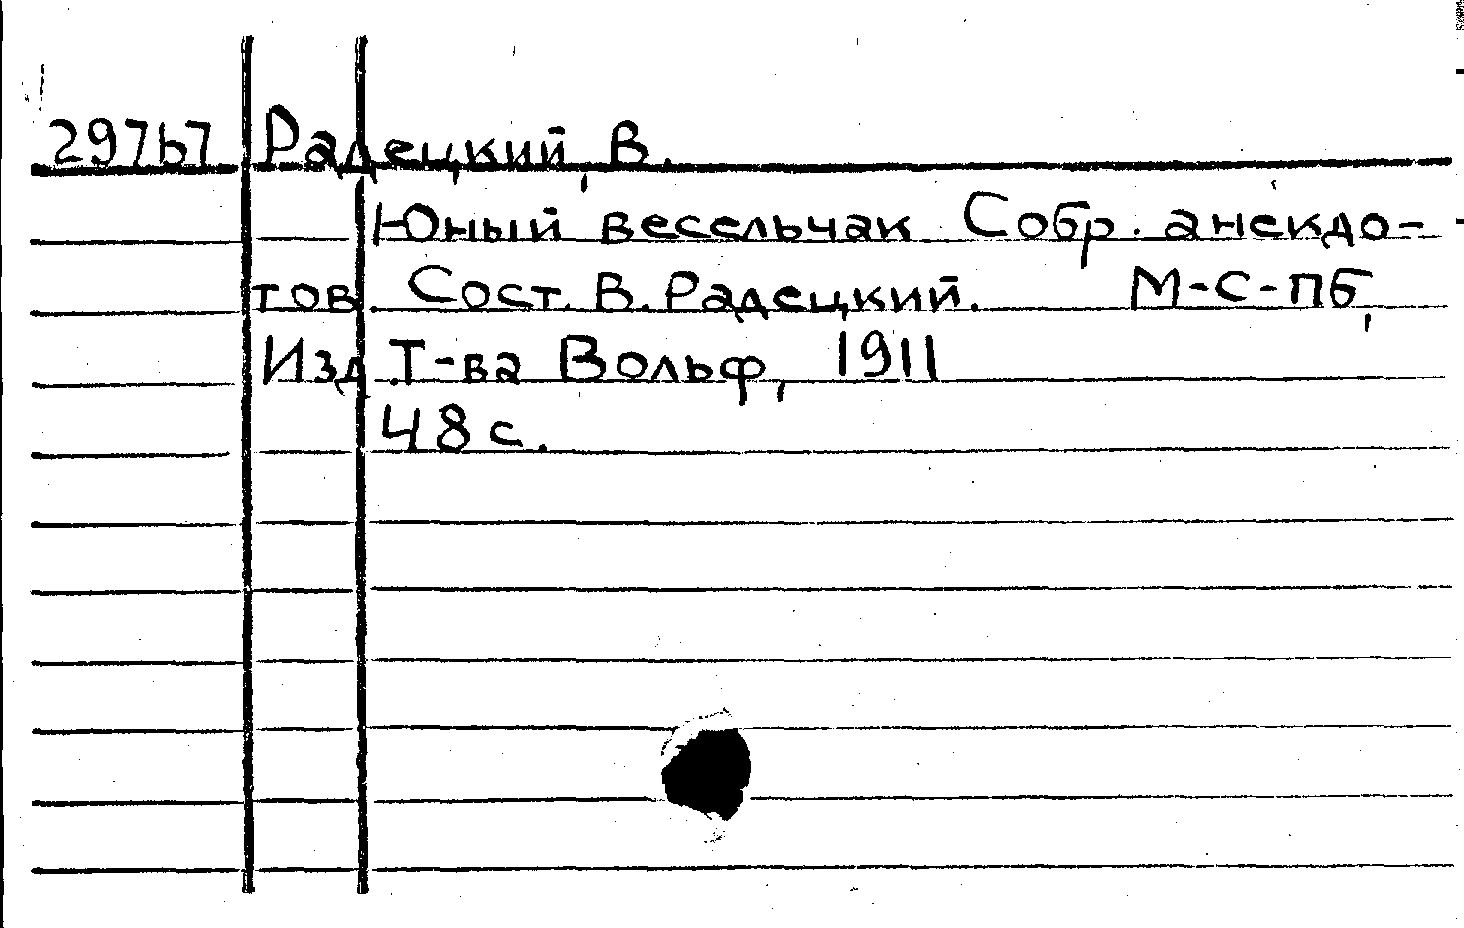 29767 Радецкий, В.
Юный весельчак. Собр. анекдо-
тов. Сост. В. Радецкий. М-С-ПБ,
Изд. Т-ва Вольф, 1911
48 с.